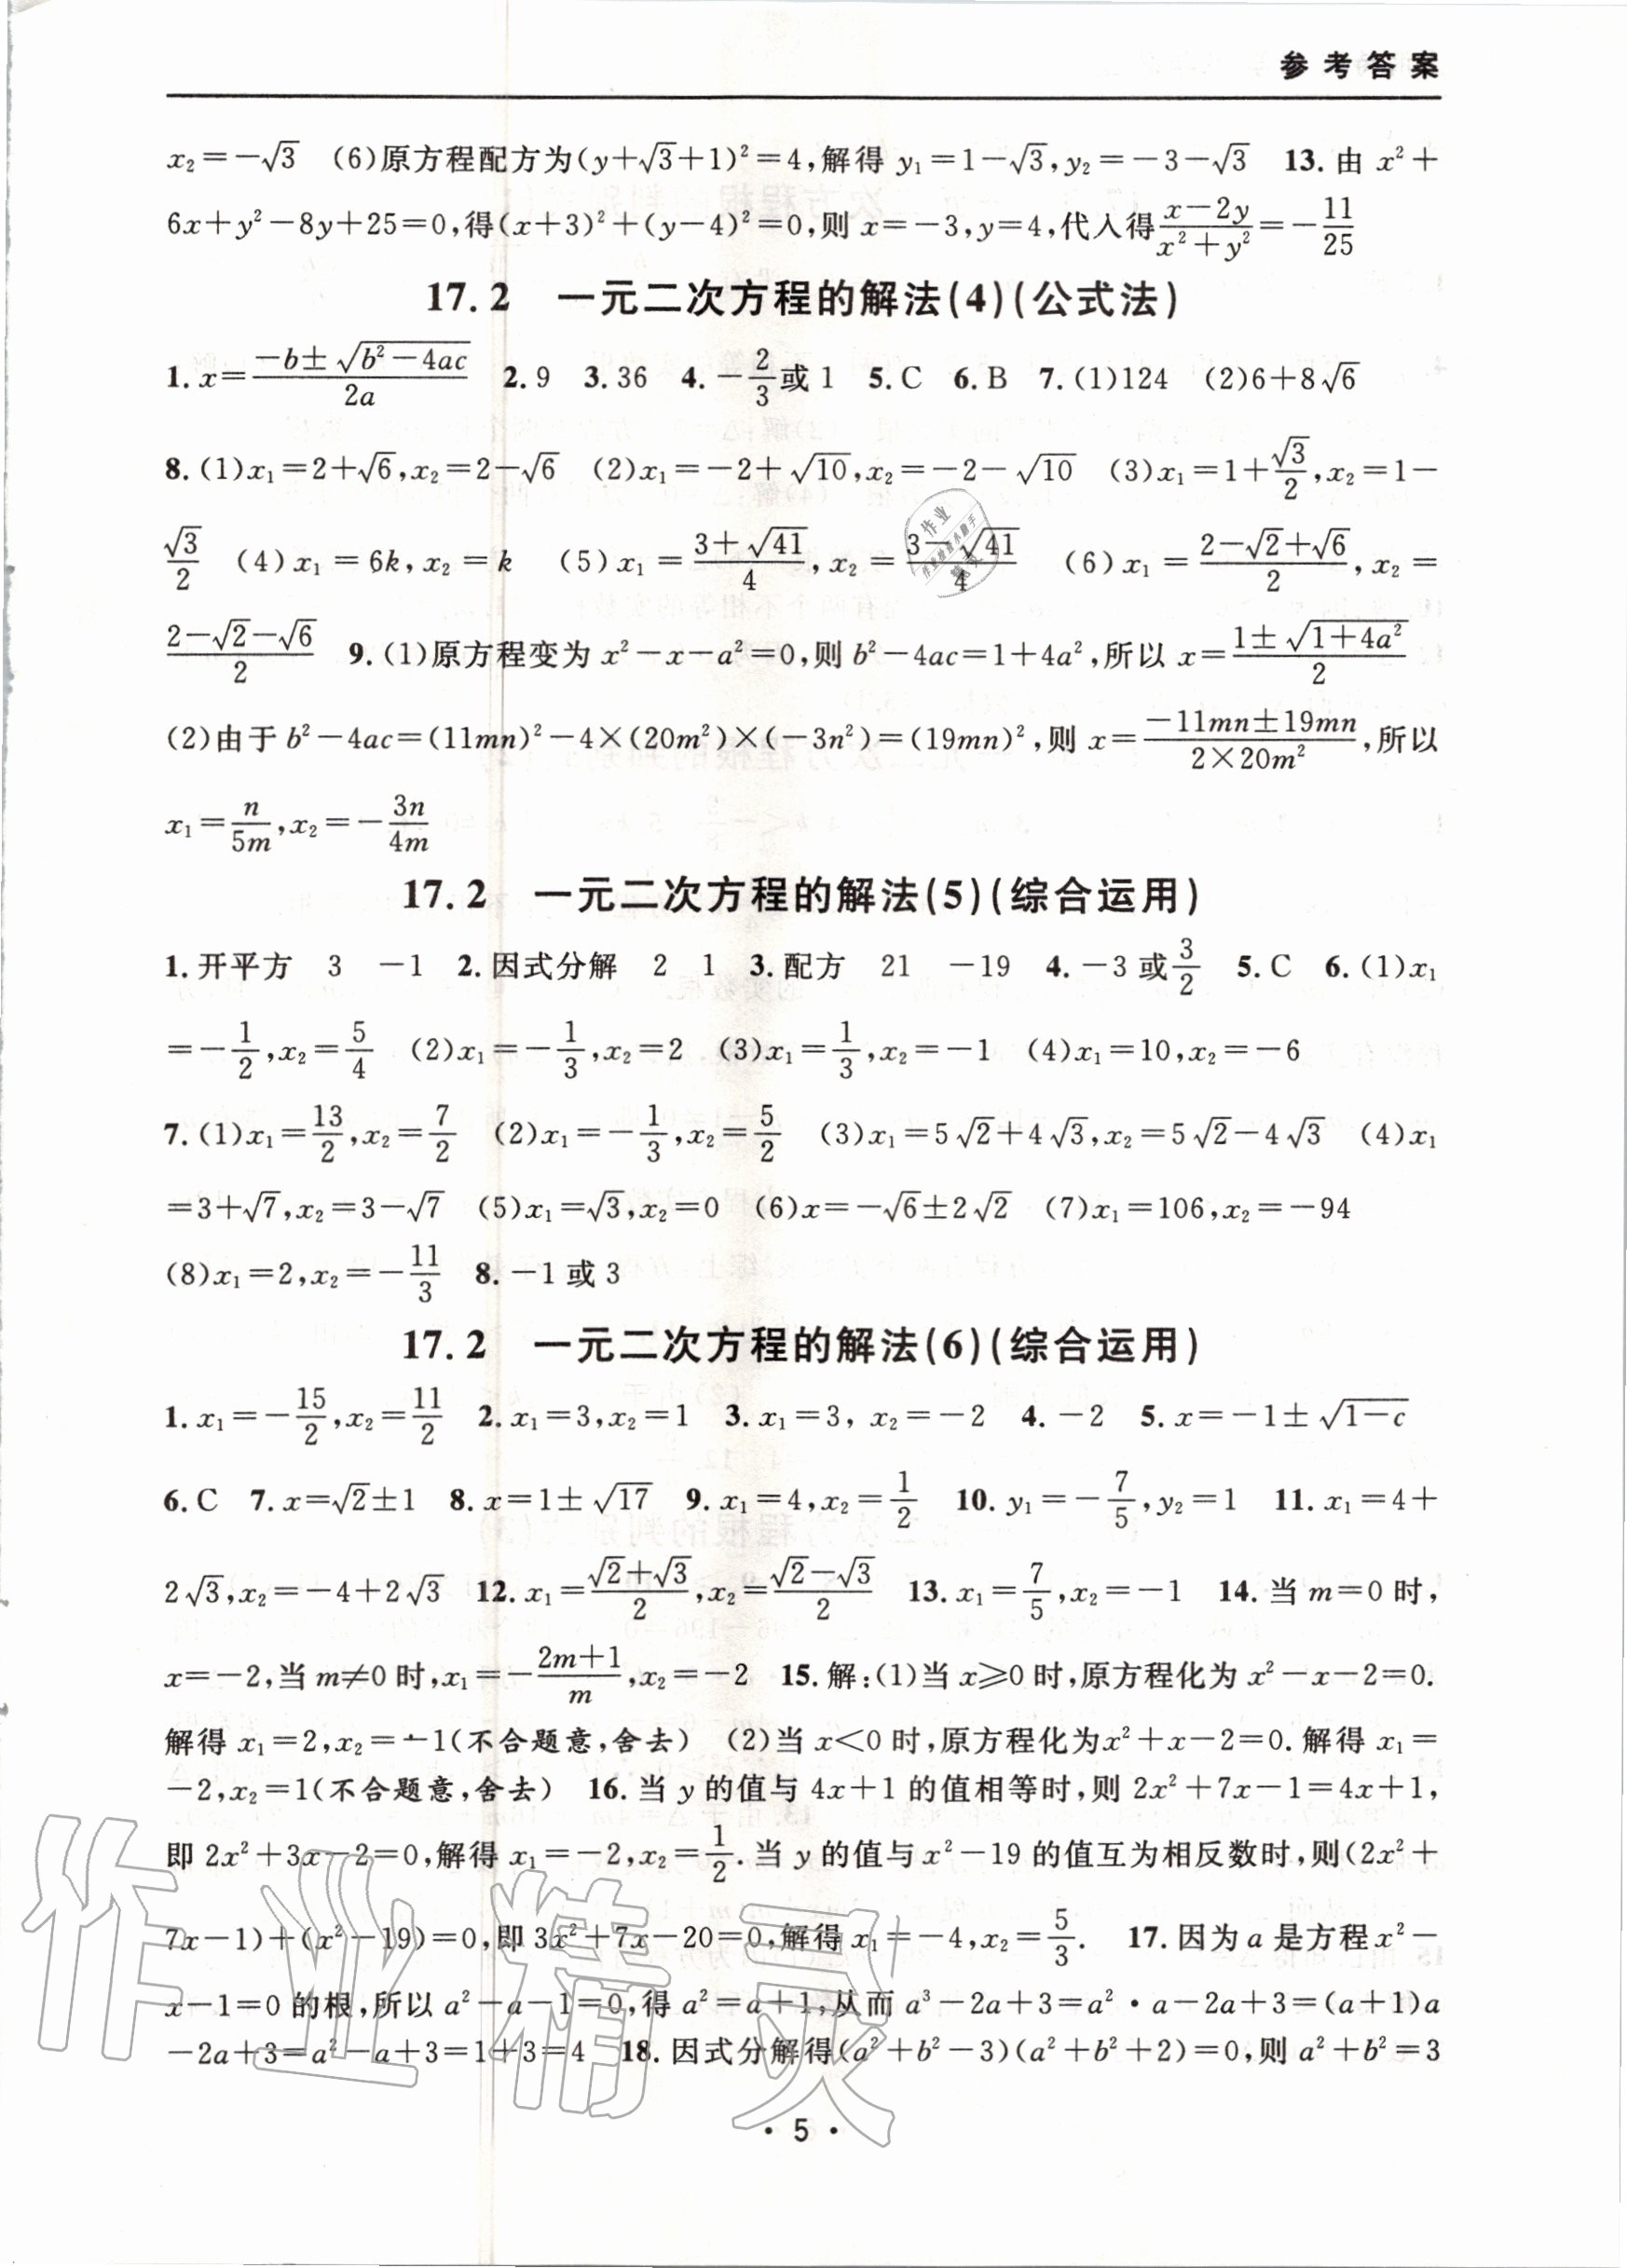 参考答案
x₂=-√3 (6)原方程配方为(y+√3+1)²=4,解得 y₁=1-√3,y₂=-3-√3 13.由 x²+
6x+y²-8y+25=0,得(x+3)²+(y-4)²=0,则 x=-3,y=4,代入得(x-2y)/(x²+y²)=-11/25
17.2 一元二次方程的解法(4)(公式法)
1.x=(-b±√(b²-4ac))/2a 2.9 3.36 4.-2/3或1 5.C 6.B 7.(1)124 (2)6+8√6
8.(1)x₁=2+√6,x₂=2-√6 (2)x₁=-2+√10,x₂=-2-√10 (3)x₁=1+√3/2,x₂=1-
√3/2 (4)x₁=6k,x₂=k (5)x₁=(3+√41)/4,x₂=(3-√41)/4 (6)x₁=(2-√2+√6)/2,x₂=
(2-√2-√6)/2 9.(1)原方程变为 x²-x-a²=0,则 b²-4ac=1+4a²,所以 x=(1±√(1+4a²))/2
(2)由于 b²-4ac=(11mn)²-4×(20m²)×(-3n²)=(19mn)²,则 x=(-11mn±19mn)/(2×20m²),所以
x₁=n/5m,x₂=-3n/4m
17.2 一元二次方程的解法(5)(综合运用)
1.开平方 3 -1 2.因式分解 2 1 3.配方 21 -19 4.-3或3/2 5.C 6.(1)x₁
=-1/2,x₂=5/4 (2)x₁=-1/3,x₂=2 (3)x₁=1/3,x₂=-1 (4)x₁=10,x₂=-6
7.(1)x₁=13/2,x₂=7/2 (2)x₁=-1/3,x₂=5/2 (3)x₁=5√2+4√3,x₂=5√2-4√3 (4)x₁
=3+√7,x₂=3-√7 (5)x₁=√3,x₂=0 (6)x=-√6±2√2 (7)x₁=106,x₂=-94
(8)x₁=2,x₂=-11/3 8.-1或3
17.2 一元二次方程的解法(6)(综合运用)
1.x₁=-15/2,x₂=11/2 2.x₁=3,x₂=1 3.x₁=3, x₂=-2 4.-2 5.x=-1±√(1-c)
6.C 7.x=√2±1 8.x=1±√17 9.x₁=4,x₂=1/2 10.y₁=-7/5,y₂=1 11.x₁=4+
2√3,x₂=-4+2√3 12.x₁=(√2+√3)/2,x₂=(√2-√3)/2 13.x₁=7/5,x₂=-1 14.当 m=0 时,
x=-2,当 m≠0 时,x₁=-(2m+1)/m,x₂=-2 15.解:(1)当 x⩾0 时,原方程化为 x²-x-2=0.
解得 x₁=2,x₂=-1(不合题意,舍去) (2)当 x<0 时,原方程化为x²+x-2=0.解得 x₁=
-2,x₂=1(不合题意,舍去) 16.当 y 的值与 4x+1 的值相等时,则 2x²+7x-1=4x+1,
即 2x²+3x-2=0,解得 x₁=-2,x₂=1/2.当 y 的值与 x²-19 的值互为相反数时,则(2x²+
7x-1)+(x²-19)=0,即 3x²+7x-20=0,解得 x₁=-4,x₂=5/3. 17.因为 a 是方程 x²-
x-1=0 的根,所以 a²-a-1=0,得 a²=a+1,从而 a³-2a+3=a²·a-2a+3=(a+1)a
-2a+3=a²-a+3=1+3=4 18.因式分解得(a²+b²-3)(a²+b²+2)=0,则 a²+b²=3
·5·
作业精灵